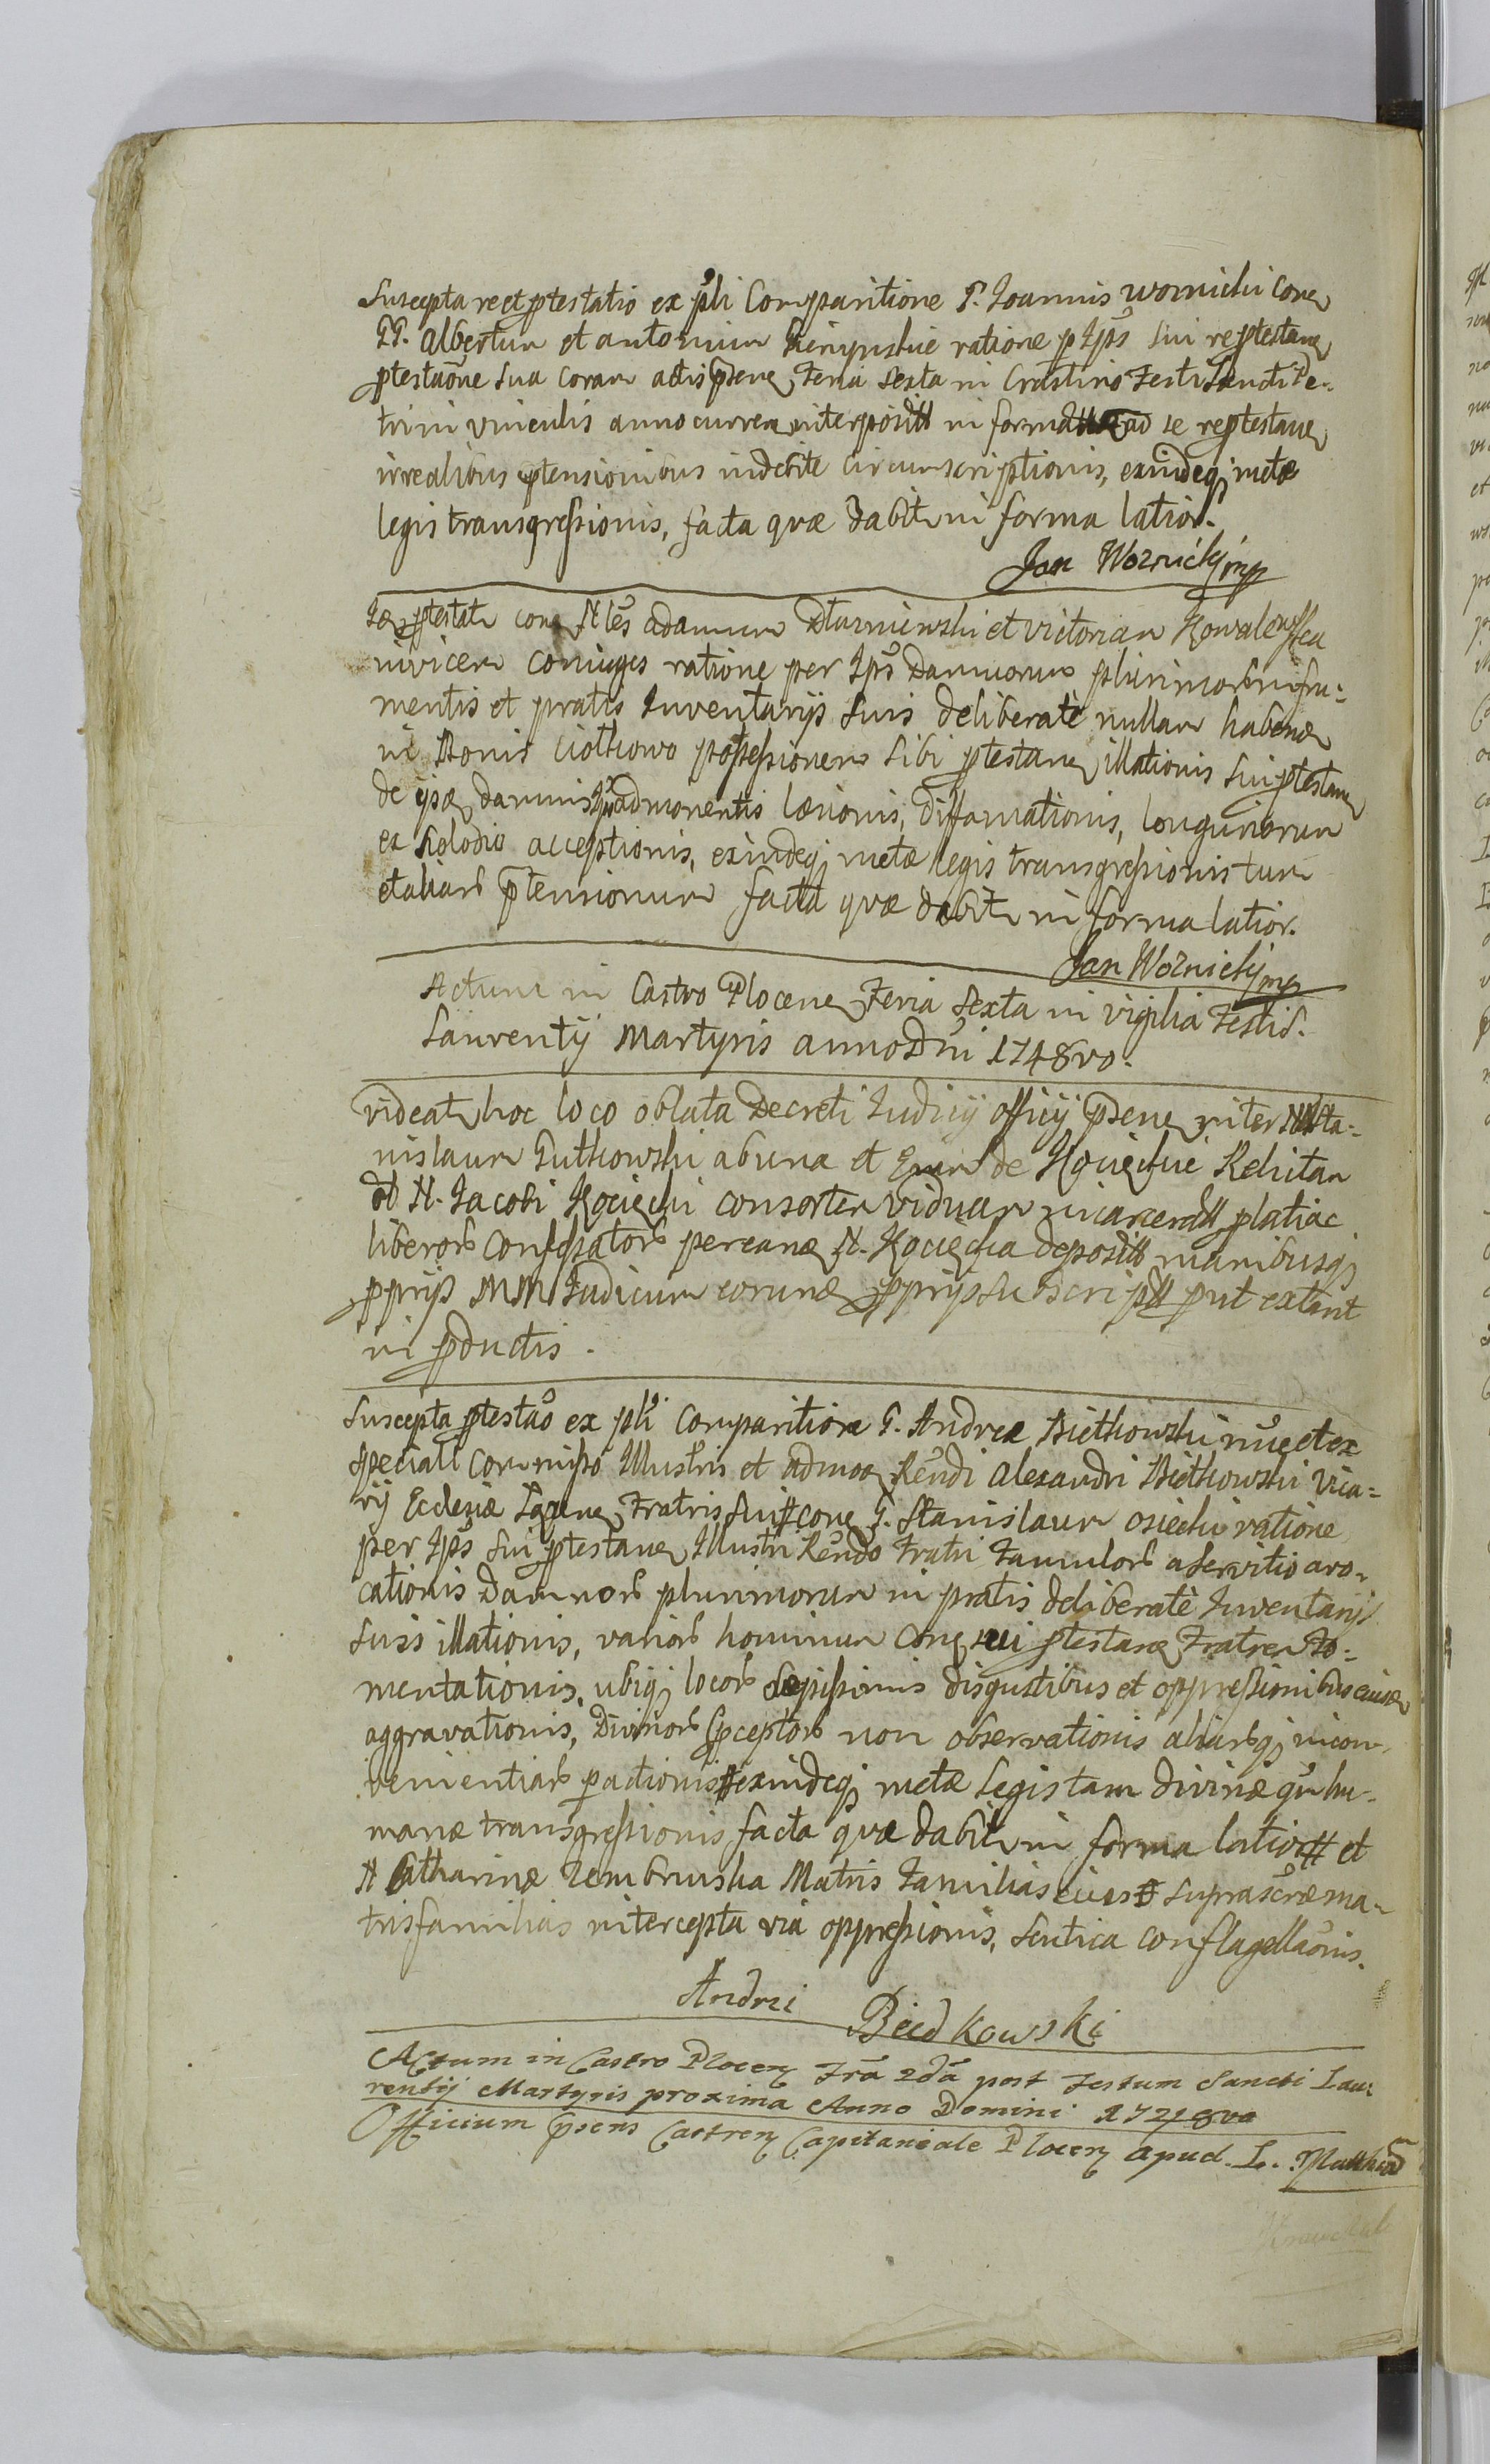 Suscepta reptestatio ex psli Comparitione G. Joannis Woznicki con
GG. Albertum et Antonium Krempskie ratione p Ips sui reptestan
ptestaone sua coram actis psen feria sexta in Crastino Festi Sancti Pe-
tri in vinculis anno curren interposit in format ad se reptestan
irrealibus ptensionibus indebite circumscriptionis, exindeq metæ
legis transgressionis, facta quæ dabit in forma latior.
Jan Woznicki mp
ptestat con Nles Adamum Dłuzniewski et Victoriam Kowalewska
invicem coniuges ratione per Ips damnorum plurimor in fru-
mentis et pratis Inventarijs suis deliberatè nullam haben
in Bonis Ciotkowo possessionem sibi ptestan illationis sui ptestan
de ijs damnis admonentis læsionis, diffamationis, longuriorum
ex Kolodio acceptionis, exindeq metæ legis transgressionis tum
et aliar ptensionum facta quæ dabit in forma latior.
Jan Woznicki mp
Actum in Castro Plocen Feria Sexta in vigilia Festi S.
Laurentij Martyris anno Dni 1748vo.
videat hoc loco oblata Decreti Judicij officij psen inter N Sta-
nislaum Gutkowski ab una et de Kocięckie Relictam
N. Jacobi Kocięcki consortem viduam incarcerat platiac
liberor per N. Kocięcka deposit manibusq
pprijs MM Judicum pprijs subscript put extant
in pductis.
Suscepta ptestao ex psli Comparitione G. Andreæ Biethowski nue et ex
speciali commisso Illustris et admo Rendi Alexandri Biethowski Vica-
rij Ecclesiæ Fratris sui con G. Stanislaum Osiecki ratione
per Ips sui ptestan Illustri Rendo Fratri Famulor a servitio avo-
cationis damnor plurimorum in pratis deliberatè Inventarijs
suis illationis, varior hominum con sui ptestan Fratrem fo-
mentationis, ubiq locor sæpissimis disgustibus et oppressionibus
aggravationis, Divinor pceptor non observationis aliarq incon-
venientiar pactionis exindeq metæ legis tam divinæ qm hu-
manæ transgressionis facta quæ dabit in forma latior et
N Catharinæ Zembruska Matris Familias suprascræ ma-
trisfamilias intercepta via oppressionis, scutica conflagellaonis.
Andrzi Biedkowski
Actum in Castro Plocen Fra 2da post Festum Sancti Lau-
rentij Martyris proxima Anno Domini 1748vo
Officium psens Castren Capitaneale Plocen apud L. Matthia